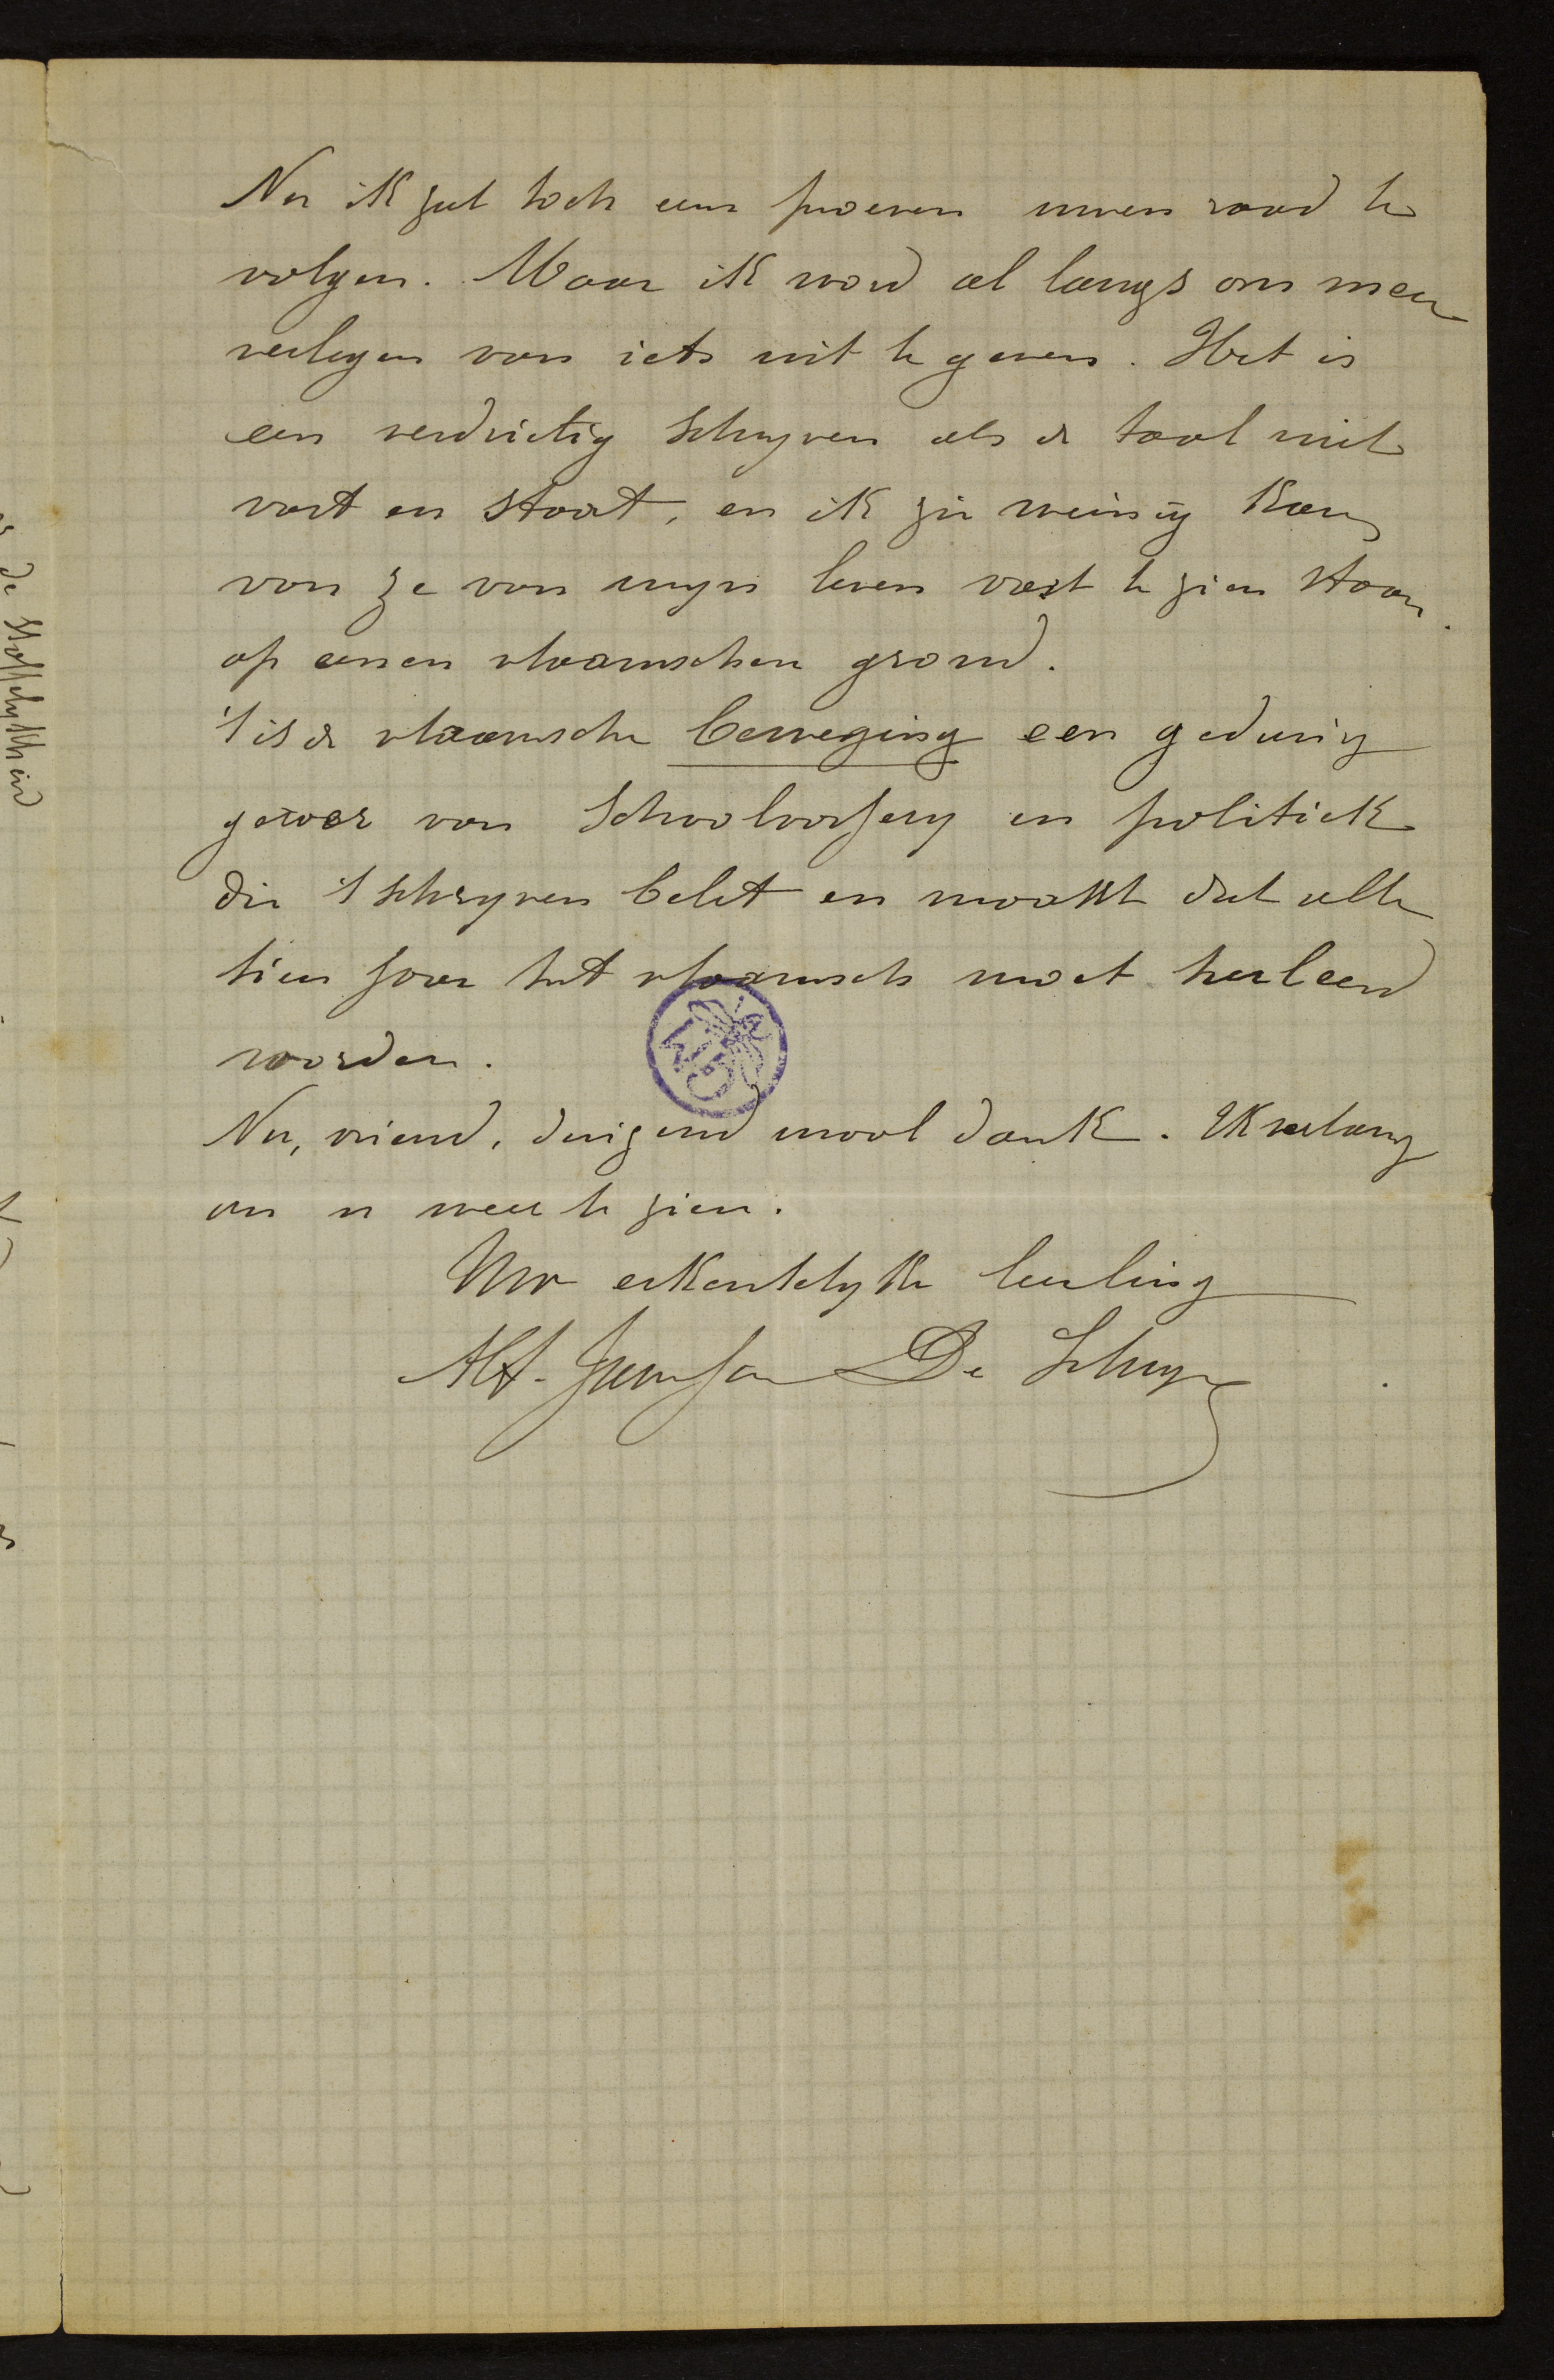 Nu ik zal toch eens proeven uwen raad te
volgen. Maar ik word al langs om meer
verlegen van iets uit te geven. Het is
een verdrietig schryven als de taal niet
vast en staat, en ik zie weinig kans
van ze van myn leven vast te zien staan
op eenen vlaamschen grond.
't is de vlaamsche beweging een gedurig
van schoolvossery en politiek
die 't schryven belet en maakt dat alle
tien jaar het vlaamsch moet herleerd
worden.
Nu, vriend, duizend maal dank. Ik verlang
om u weer te zien.
Uw erkentelyke leerling
Alf. Janssens De Schryver
de stoffelykheid